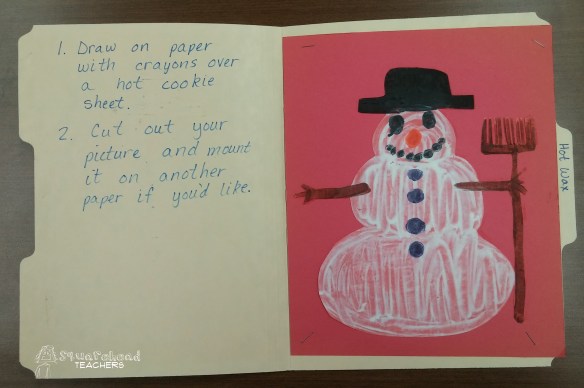 1. Draw on paper
with crayons over
a hot cookie
sheet.
2. Cut out your
picture and mount
it on another
paper if you'd like.
Hot Wax
Squarehead
TEACHERS